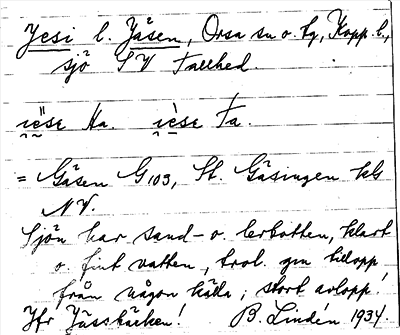 Jesi l. Jäsen, Orsa sn o. tg, Kopp. l.,
sjö SV Tallhed.
Ha. Ta.
= Gäsen G103, St. Gäsingen kG
NV.
Sjön har sand- o. lerbotten, klart
o. fint vatten, trol. gm tillopp
från någon källa; stort avlopp!
Jfr Jässkäcken! B. Lindén 1934.